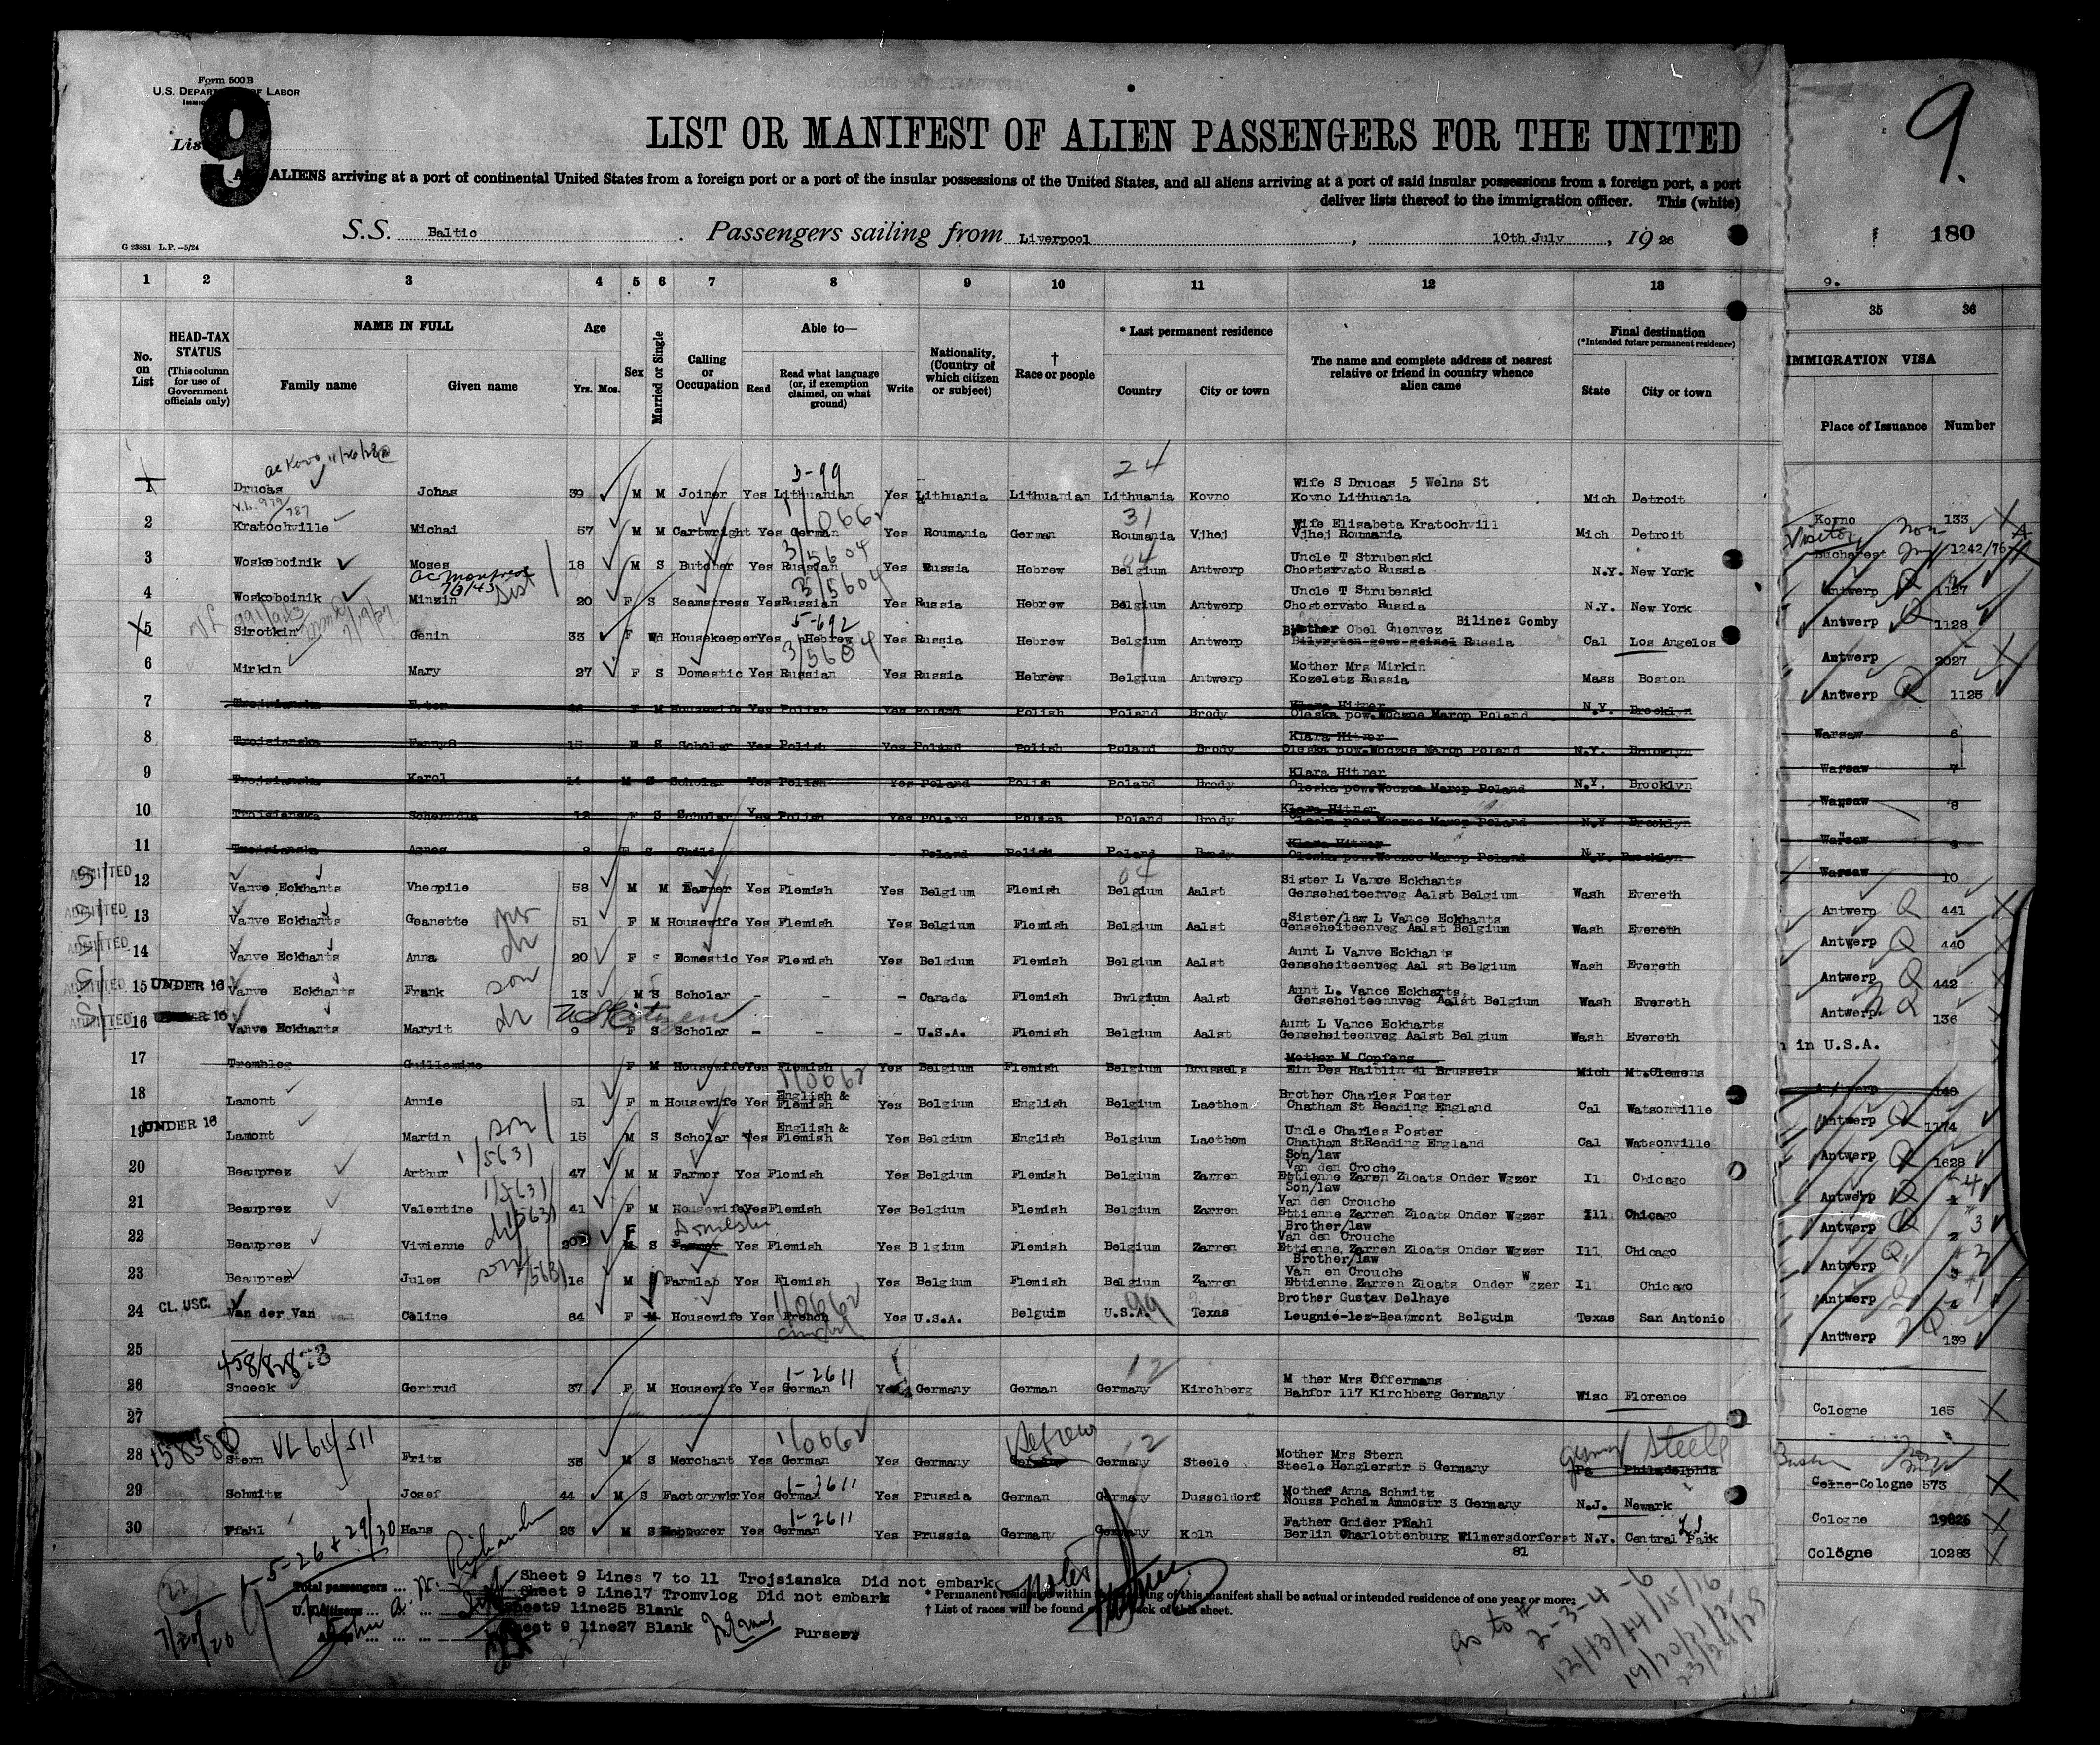 Form 500 B
U.S. DEPARTMENT OF LABOR
9
9.
LIST OR MANIFEST OF ALIEN PASSENGERS FOR THE UNITED
ALIENS arriving at a port of continental United States from a foreign port or a port of the insular possessions of the United States, and all aliens arriving at a port of said insular possessions from a foreign port, a port
deliver lists thereof to the immigration officer. This (white)
S.S. Baltic . Passengers sailing from Liverpool , 10th July , 19 26
G 23881 L.P.—5/24
180
9.
1 2 3 4 5 6 7 8 9 10 11 12 13 35 36
No. on List
HEAD-TAX STATUS (This column for use of Government officials only)
NAME IN FULL
Family name Given name
Age Yrs. Mos.
Sex
Married or Single
Calling or Occupation
Able to—
Read Read what language (or, if exemption claimed, on what ground) Write
Nationality, (Country of which citizen or subject)
† Race or people
* Last permanent residence
Country City or town
The name and complete address of nearest relative or friend in country whence alien came
Final destination (*Intended future permanent residence)
State City or town
IMMIGRATION VISA
Place of Issuance Number
3-99 24
Wife S Drucas 5 Welna St
1 Drucas Johas 39 M M Joiner Yes Lithuanian Yes Lithuania Lithuanian Lithuania Kovno Kovno Lithuania Mich Detroit Kovno 133
31
Wife Elisabeta Kratochvill
2 Kratochville Michai 57 M M Cartwright Yes German Yes Roumania German Roumania Vjhej Vjhej Roumania Mich Detroit Bucharest 1242/76
3/5604
Uncle T Strubenski
3 Woskoboinik Moses 18 M S Butcher Yes Russian Yes Russia Hebrew Belgium Antwerp Chostervato Russia N.Y. New York Antwerp 1127
3/5604
Uncle T Strubenski
4 Woskoboinik Minzin 20 F S Seamstress Yes Russian Yes Russia Hebrew Belgium Antwerp Chostervato Russia N.Y. New York Antwerp 1128
5-692
Obel Guenvez Bilinez Gomby
5 Sirotkin Genin 33 F Wd Housekeeper Yes Hebrew Yes Russia Hebrew Belgium Antwerp Russia Cal Los Angelos Antwerp 2027
3/5604
Mother Mrs Mirkin
6 Mirkin Mary 27 F S Domestic Yes Russian Yes Russia Hebrew Belgium Antwerp Kozeletz Russia Mass Boston Antwerp 1125
Klara Hitner
7 Trojsianska F M Housewife Yes Polish Yes Poland Polish Poland Brody Oleska pow.Woczoe Marop Poland N.Y. Brooklyn Warsaw 6
Klara Hitner
8 Trojsianska S Scholar Yes Polish Yes Poland Polish Poland Brody Oleska pow.Woczoe Marop Poland N.Y. Brooklyn Warsaw 7
Klara Hitner
9 Trojsianska Karol 14 M S Scholar Yes Polish Yes Poland Polish Poland Brody Oleska pow.Woczoe Marop Poland N.Y. Brooklyn Warsaw 8
Klara Hitner
10 Trojsianska 12 F S Scholar Yes Polish Yes Poland Polish Poland Brody Oleska pow.Woczoe Marop Poland N.Y Brooklyn Warsaw 9
Klara Hitner
11 Trojsianska Agnes F S Child Poland Polish Poland Brody Oleska pow.Woczoe Marop Poland N.Y. Brooklyn Warsaw 10
04
Sister L Vanve Eckhants
ADMITTED 12 Vanve Eckhants Vheopile 58 M M Farmer Yes Flemish Yes Belgium Flemish Belgium Aalst Genseheiteenveg Aalst Belgium Wash Evereth Antwerp 441
Sister/law L Vance Eckhants
ADMITTED 13 Vanve Eckhants Geanette 51 F M Housewife Yes Flemish Yes Belgium Flemish Belgium Aalst Genseheiteenveg Aalst Belgium Wash Evereth Antwerp 440
Aunt L Vanve Eckhants
ADMITTED 14 Vanve Eckhants Anna 20 F s Domestic Yes Flemish Yes Belgium Flemish Belgium Aalst Genseheiteenveg Aal st Belgium Wash Evereth Antwerp 442
Aunt L. Vance Eckharts,
ADMITTED 15 UNDER 16 Vanve Eckhants Frank son 13 M S Scholar - - - Canada Flemish Bwlgium Aalst Genseheiteennveg Aalst Belgium Wash Evereth Antwerp 136
US Citizen
Aunt L Vance Eckharts
ADMITTED 16 Vanve Eckhants Maryit 9 F S Scholar - - - U.S.A. Flemish Belgium Aalst Genseheiteenveg Aalst Belgium Wash Evereth in U.S.A.
Mother M Copfens
17 Tromblog Guillomine F M Housewife Yes Flemish Yes Belgium Flemish Belgium Brussels Ein Des Haiblin 41 Brussels Mich Mt.Clemens Antwerp
English & Brother Charles Poster
18 Lamont Annie 51 F m Housewife Yes Flemish Yes Belgium English Belgium Laethem Chatham St Reading England Cal Watsonville Antwerp 1174
English & Uncle Charles Poster
19 UNDER 16 Lamont Martin son 15 M S Scholar Yes Flemish Yes Belgium English Belgium Laethem Chatham StReading England Cal Watsonville Antwerp 1628
Son/law
Van den Croche
20 Beauprez Arthur 47 M M Farmer Yes Flemish Yes Belgium Flemish Belgium Zarren Ettienne Zaren Zloats Onder Wgzer Il Chicago Antwerp 4
Son/law
Van den Crouche
21 Beauprez Valentine 41 F M Housewife Yes Flemish Yes Belgium Flemish Belgium Zarren Ettienne Zarren Zloats Onder Wgzer Ill Chicago Antwerp 3
Brother/law
Van den Crouche
22 Beauprez Vivienne F S Farmer Yes Flemish Yes B lgium Flemish Belgium Zarren Ettienne Zarren Zloats Onder Wgzer Ill Chicago Antwerp 2
Brother/law
Van en Crouche
23 Beauprez Jules son 16 M Farmlab Yes Flemish Yes Belgium Flemish Belgium Zarren Ettienne Zarren Zloats Onder Wgzer Il Chicago Antwerp 1
Brother Gustav Delhaye
24 CL. USC. Van der Van Celine 64 F M Housewife Yes French Yes U.S.A. Belguim U.S.A. Texas Leugnie-lez-Beaumont Belguim Texas San Antonio Antwerp 139
25
1-2611 12
M ther Mrs Offermans
26 Snoeck Gertrud 37 F M Housewife Yes German Yes Germany German Germany Kirchberg Bahfor 117 Kirchberg Germany Wisc Florence Cologne 165
27
158580 VL 64/511 Hebrew 12 Germany Steele
Mother Mrs Stern
28 Stern Fritz 35 M S Merchant Yes German Yes Germany German Germany Steele Steele Henglerstr 5 Germany Pa Philadelphia Cologne 573
1-3611
Mother Anna Schmitz
29 Schmitz Josef 44 M S Factorywkr Yes German Yes Prussia German Germany Dusseldorf Nouss Pcheim Ammostr 3 Germany N.J. Newark Cologne 19826
1-2611
Father Gnider Pfahl
30 Pfahl Hans 23 M S Labourer Yes German Yes Prussia Germany Germany Koln Berlin Charlottenburg Wilmersdorferst N.Y. Central Park Cologne 10283
81
Total passengers
U.S. citizens
Sheet 9 Lines 7 to 11 Trojsianska Did not embark
Sheet 9 Line17 Tromvlog Did not embark
Sheet9 line25 Blank
Sheet 9 line27 Blank
Purser
* Permanent residence within the meaning of this manifest shall be actual or intended residence of one year or more.
† List of races will be found on the back of this sheet.
7/20/26
as to #
2-3-4-6
12/13/14/15/16